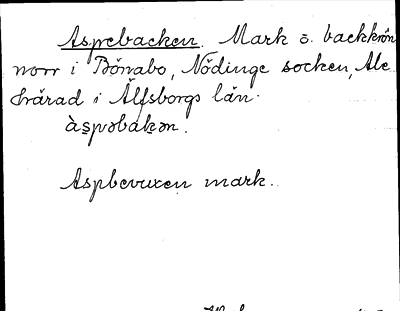 Aspebacken. Mark o. backkrön
norr i Bönabo, Nödinge socken, Ale
härad i Älfsborgs län.
àspəbakən.
Aspbevuxen mark.